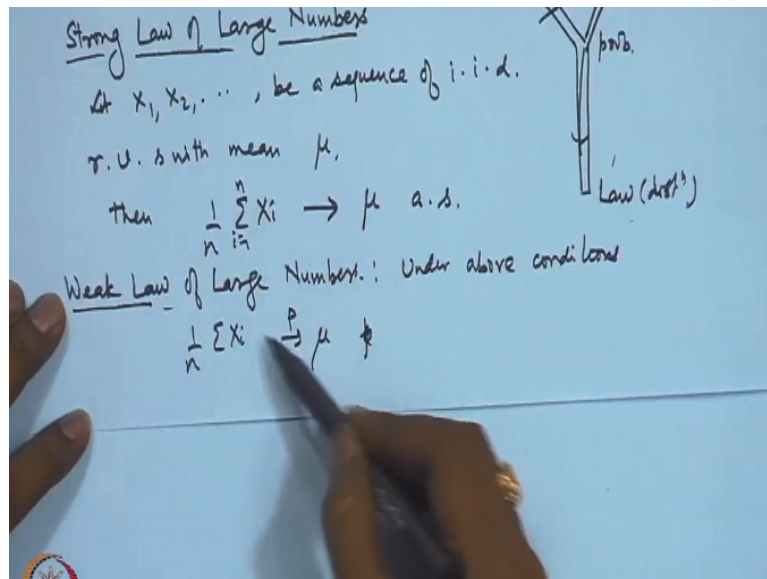 Strong Law of Large Numbers
Let X₁, X₂, ..., be a sequence of i.i.d.
r.v.s with mean μ.
then 1/n Σ_{i=1}^{n} Xi → μ a.s.
Weak Law of Large Numbers: Under above conditions
1/n ΣXi →^p μ
prob.
Law (distⁿ)